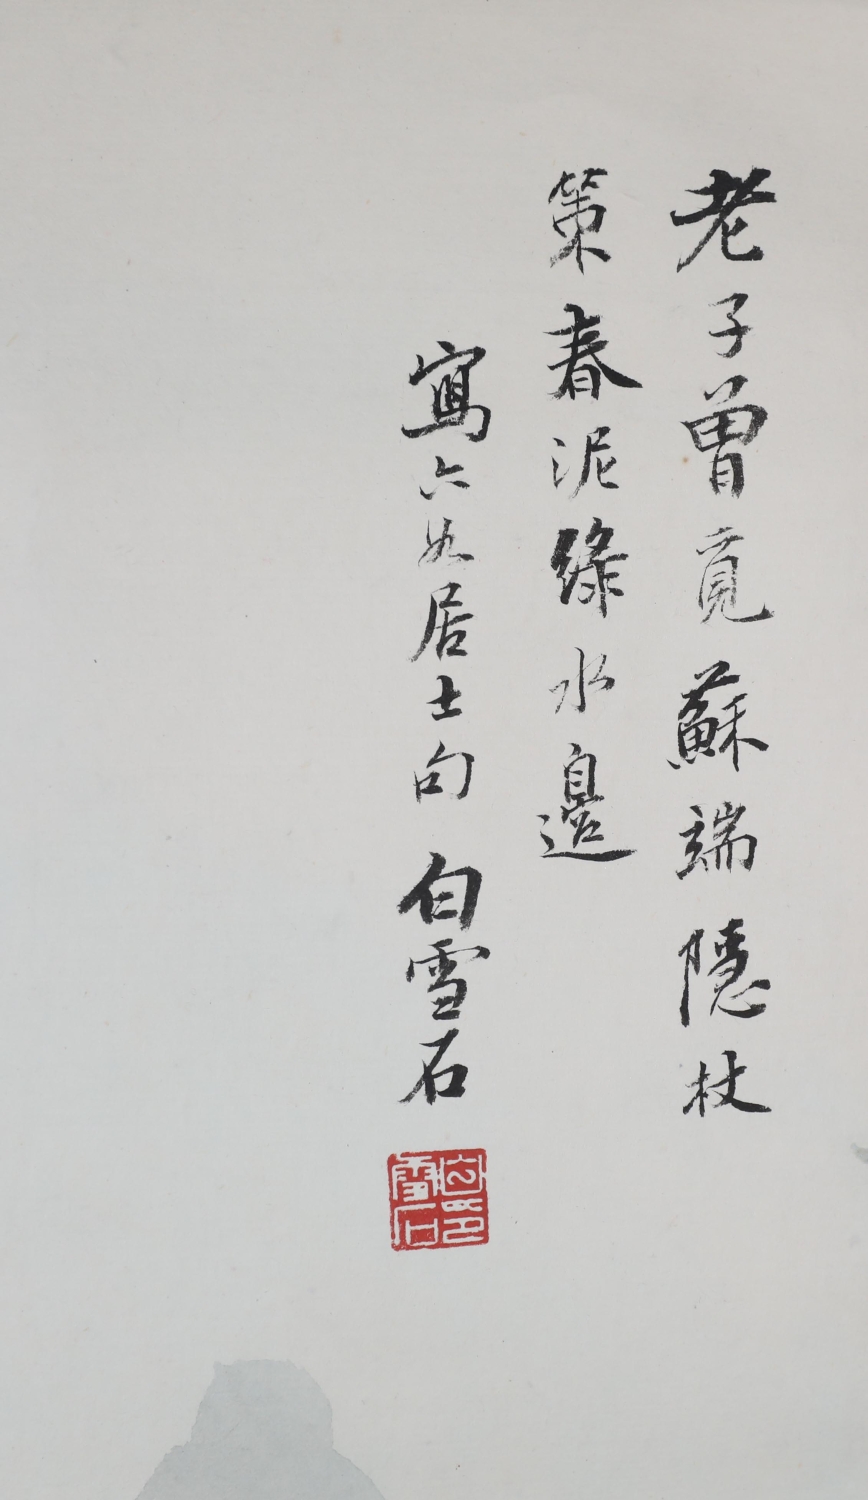 老子曾覓蘇端隱杖
策春泥綠水邊
寫六如居士句 白雪石
白雪石印